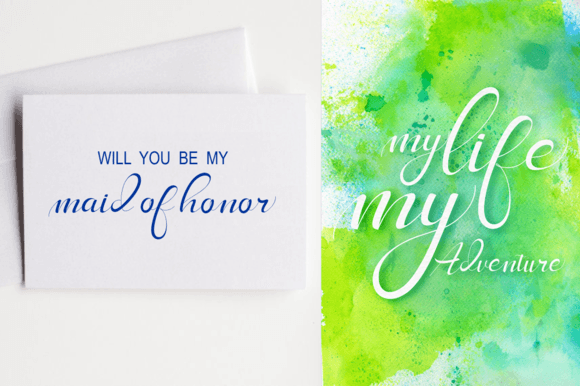 WILL YOU BE MY
maid of honor
my life
my
Adventure